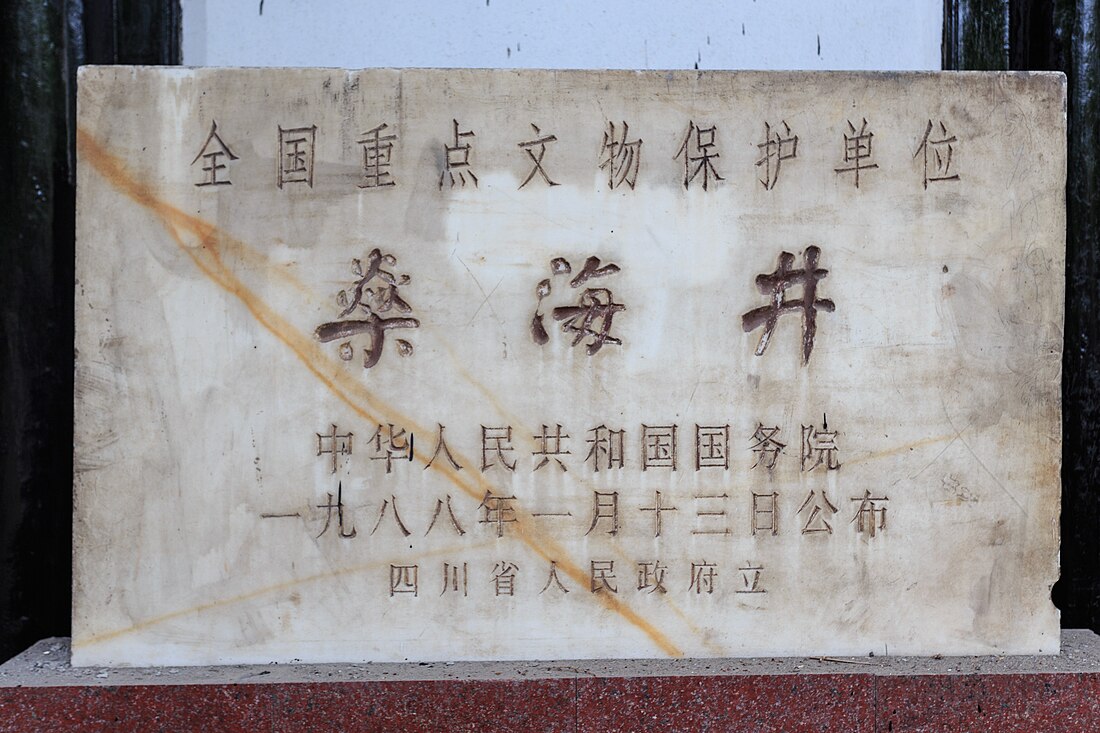 全国重点文物保护单位
燊海井
中华人民共和国国务院
一九八八年一月十三日公布
四川省人民政府立